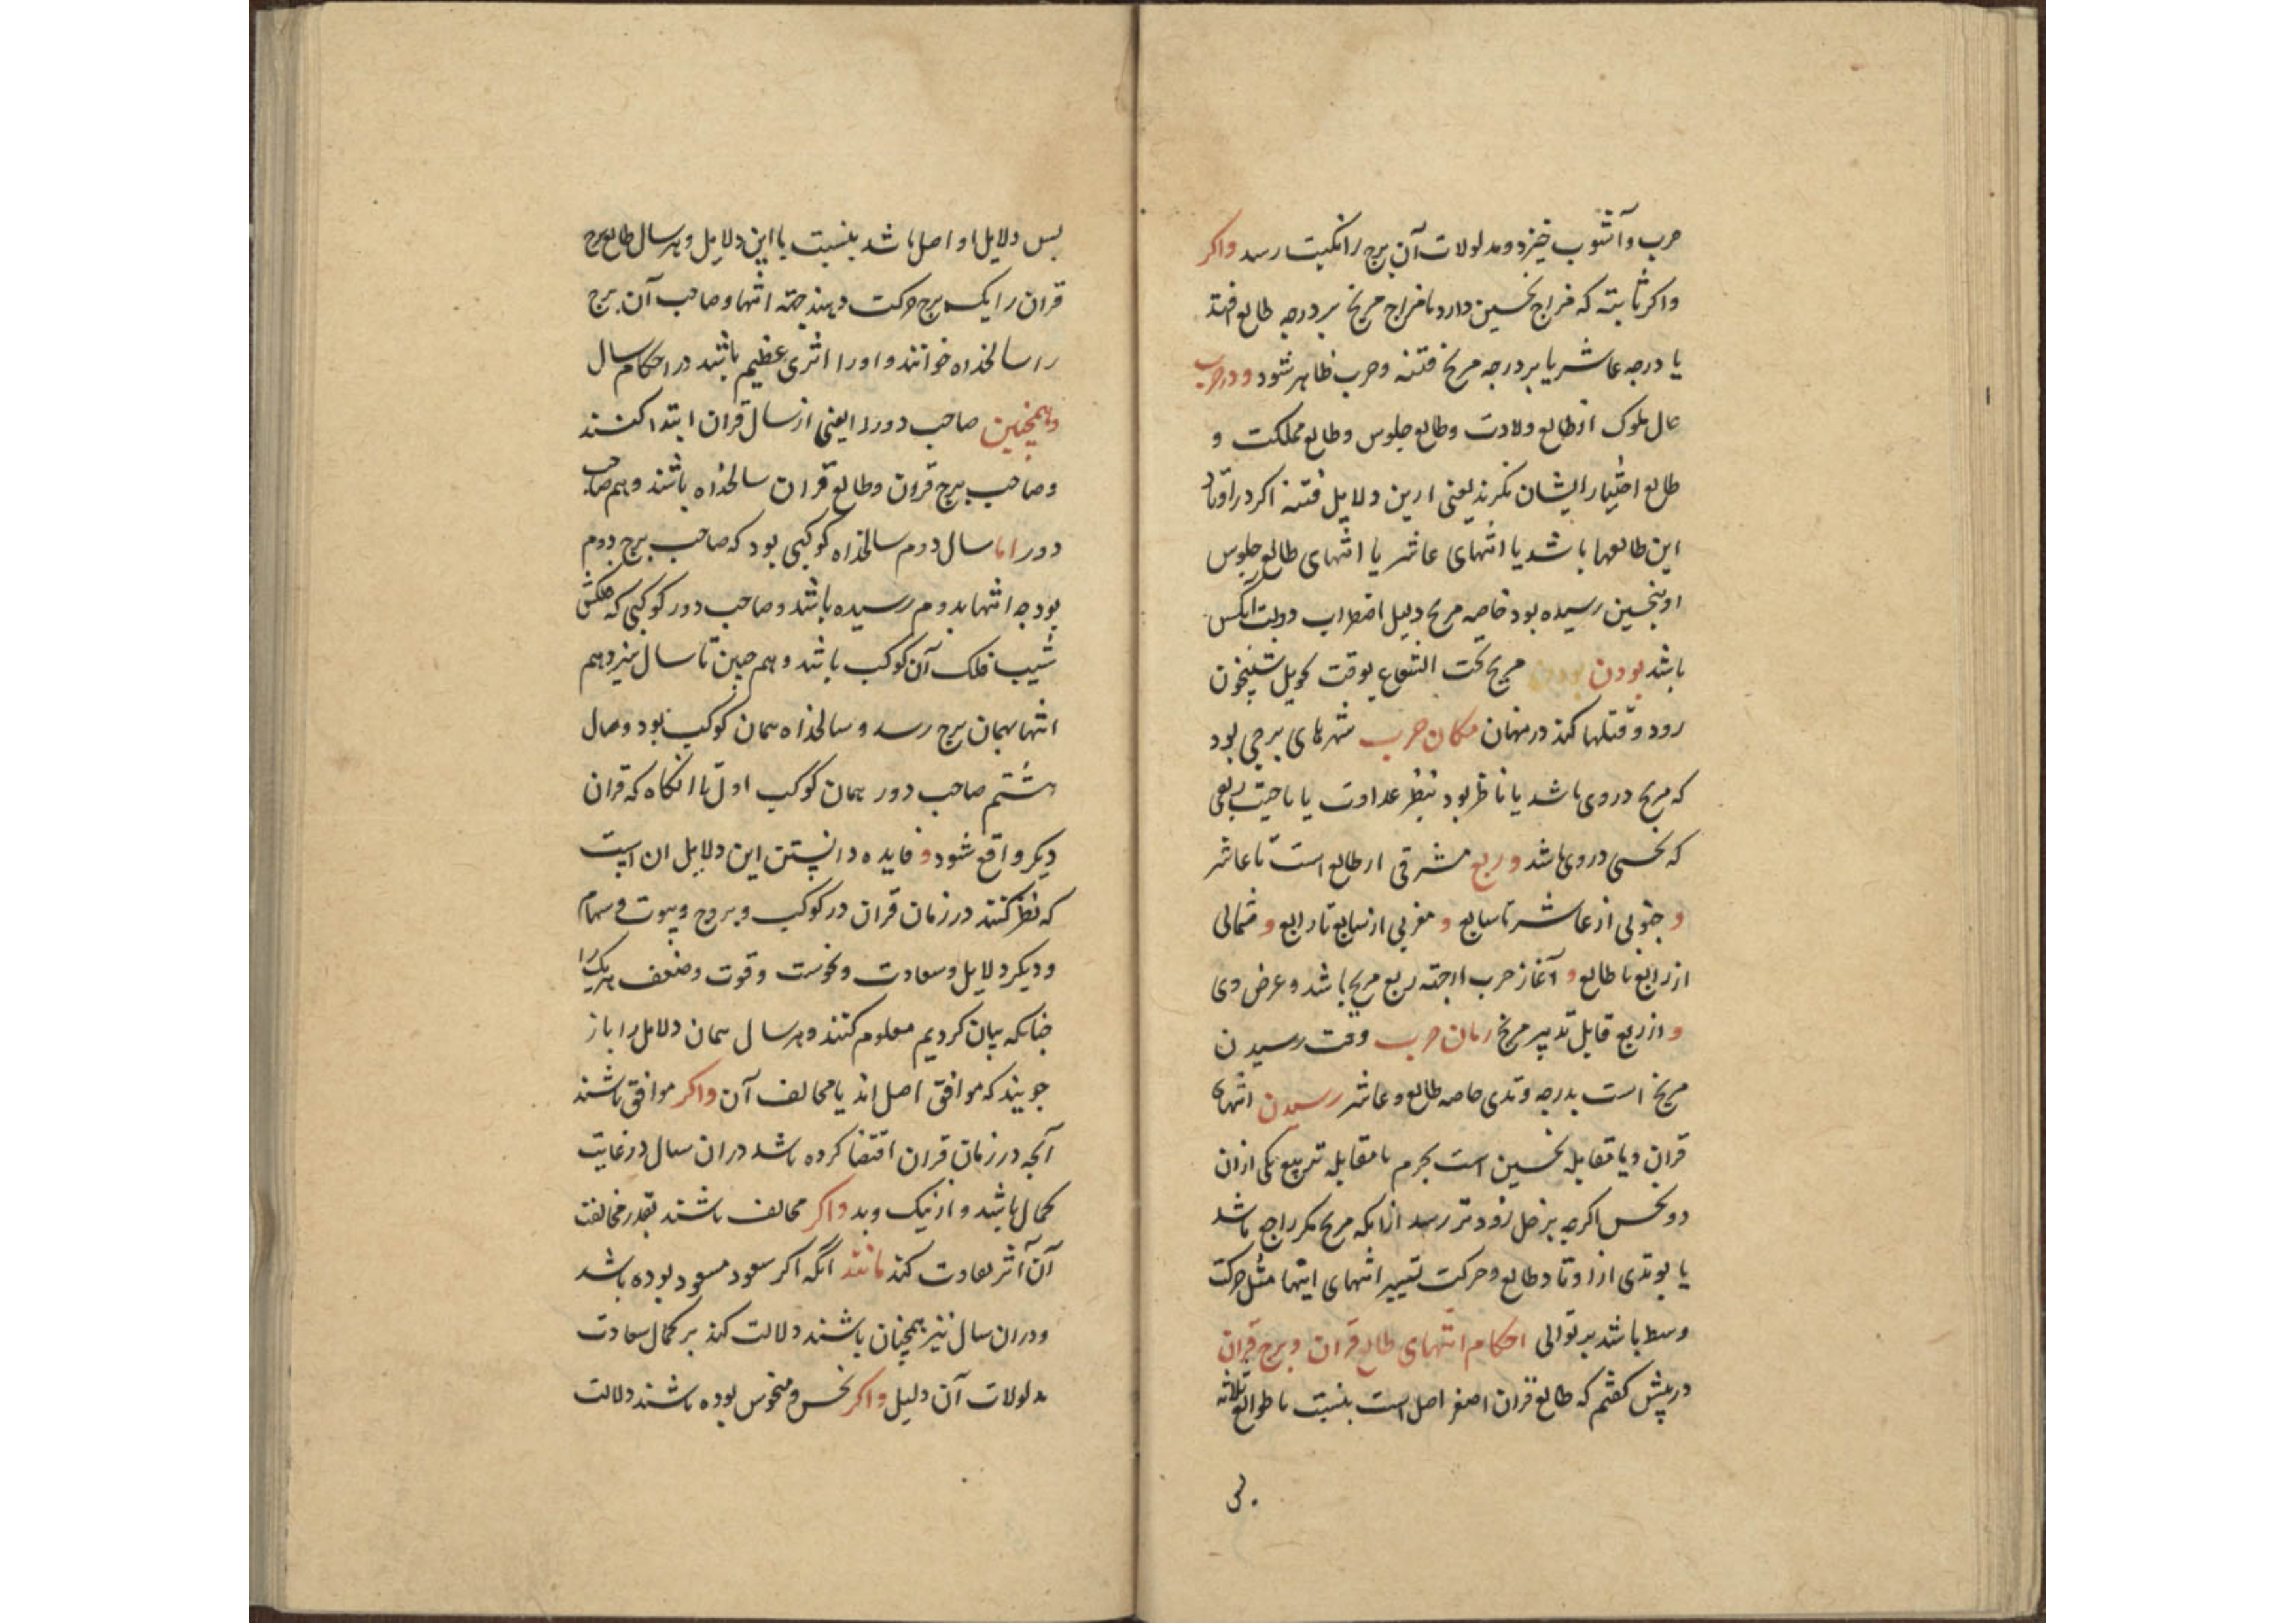 حرب و آشوب خیزد و مدلولات آن برج را نکبت رسد واکر
واکر ثابته که مزاج نحسین دارد یا مزاج مریخ بر درجه طالع افتد
یا درجه عاشر یا بر درجه مریخ فتنه و حرب ظاهر شود و در حرب
حال ملوک از طالع ولادت و طالع جلوس و طالع مملکت و
طالع اختیار ایشان نکرند یعنی ازین دلایل فتنه اکر در اوتاد
این طالعها باشد یا انتهای عاشر یا انتهای طالع جلوس
او بنحسین رسیده بود خاصه مریخ دلیل اضطراب دولت آنکس
باشد بودن بودن مریخ تحت الشعاع بوقت تحویل شبیخون
رود و قتلها کند در نهان مکان حرب شهرهای برجی بود
که مریخ در وی باشد یا ناظر بود بنظر عداوت یا ناحیت ربعی
که نحسی در وی باشد و ربع مشرقی از طالع است تا عاشر
و جنوبی از عاشر تا سابع و مغربی از سابع تا رابع و شمالی
از رابع تا طالع و آغاز حرب از جهته ربع مریخ باشد و عرض وی
و از ربع قابل تدبیر مریخ زمان حرب وقت رسیدن
مریخ است بدرجه وتدی خاصه طالع و عاشر رسیدن انتهای
قران و یا مقابله نحسین است بجرم یا مقابله تربیع یکی از آن
دو نحس اکرچه بزحل زودتر رسد از آنکه مریخ مکر راجع باشد
یا بوتدی از اوتاد طالع و حرکت تسییر انتهای انتها مثل حرکت
وسط باشد بر توالی احکام انتهای طالع قران و برج قران
در پیش کفتم که طالع قران اصغر اصل است بنسبت با طوالع ثلاثه
پس دلایل او اصل باشد بنسبت با این دلایل و هر سال طالع برج
قران را یک برج حرکت دهند جهته انتها و صاحب آن برج
را سالخداه خوانند و او را اثری عظیم باشد در احکام سال
و همچنین صاحب دور را یعنی از سال قران ابتدا کنند
و صاحب برج قران و طالع قران سالخداه باشند و هم صاحب
دور اما سال دوم سالخداه کوکبی بود که صاحب برج دوم
بود چه انتها بدوم رسیده باشد و صاحب دور کوکبی که فلکش
شیب فلک آن کوکب باشد و هم چنین تا سال سیزدهم
انتها بهمان برج رسد و سالخداه همان کوکب بود و سال
هشتم صاحب دور همان کوکب اول تا آنکاه که قران
دیکر واقع شود و فایده دانستن این دلایل ان است
که نظر کنند در زمان قران در کوکب و بروج و بیوت و سهام
و دیکر دلایل و سعادت و نحوست و قوت و ضعف هر یک را
چنانکه بیان کردیم معلوم کنند و هر سال همان دلایل را باز
جویند که موافق اصل اند یا مخالف آن واکر موافق باشند
آنچه در زمان قران اقتضا کرده باشد در ان سال در غایت
کمال باشد و از نیک و بد واکر مخالف باشند بقدر مخالفت
آن اثر تفاوت کند مانند آنکه اکر سعود مسعود بوده باشد
و در ان سال نیز همچنان باشند دلالت کند بر کمال سعادت
مدلولات آن دلیل واکر نحس و منحوس بوده باشند دلالت